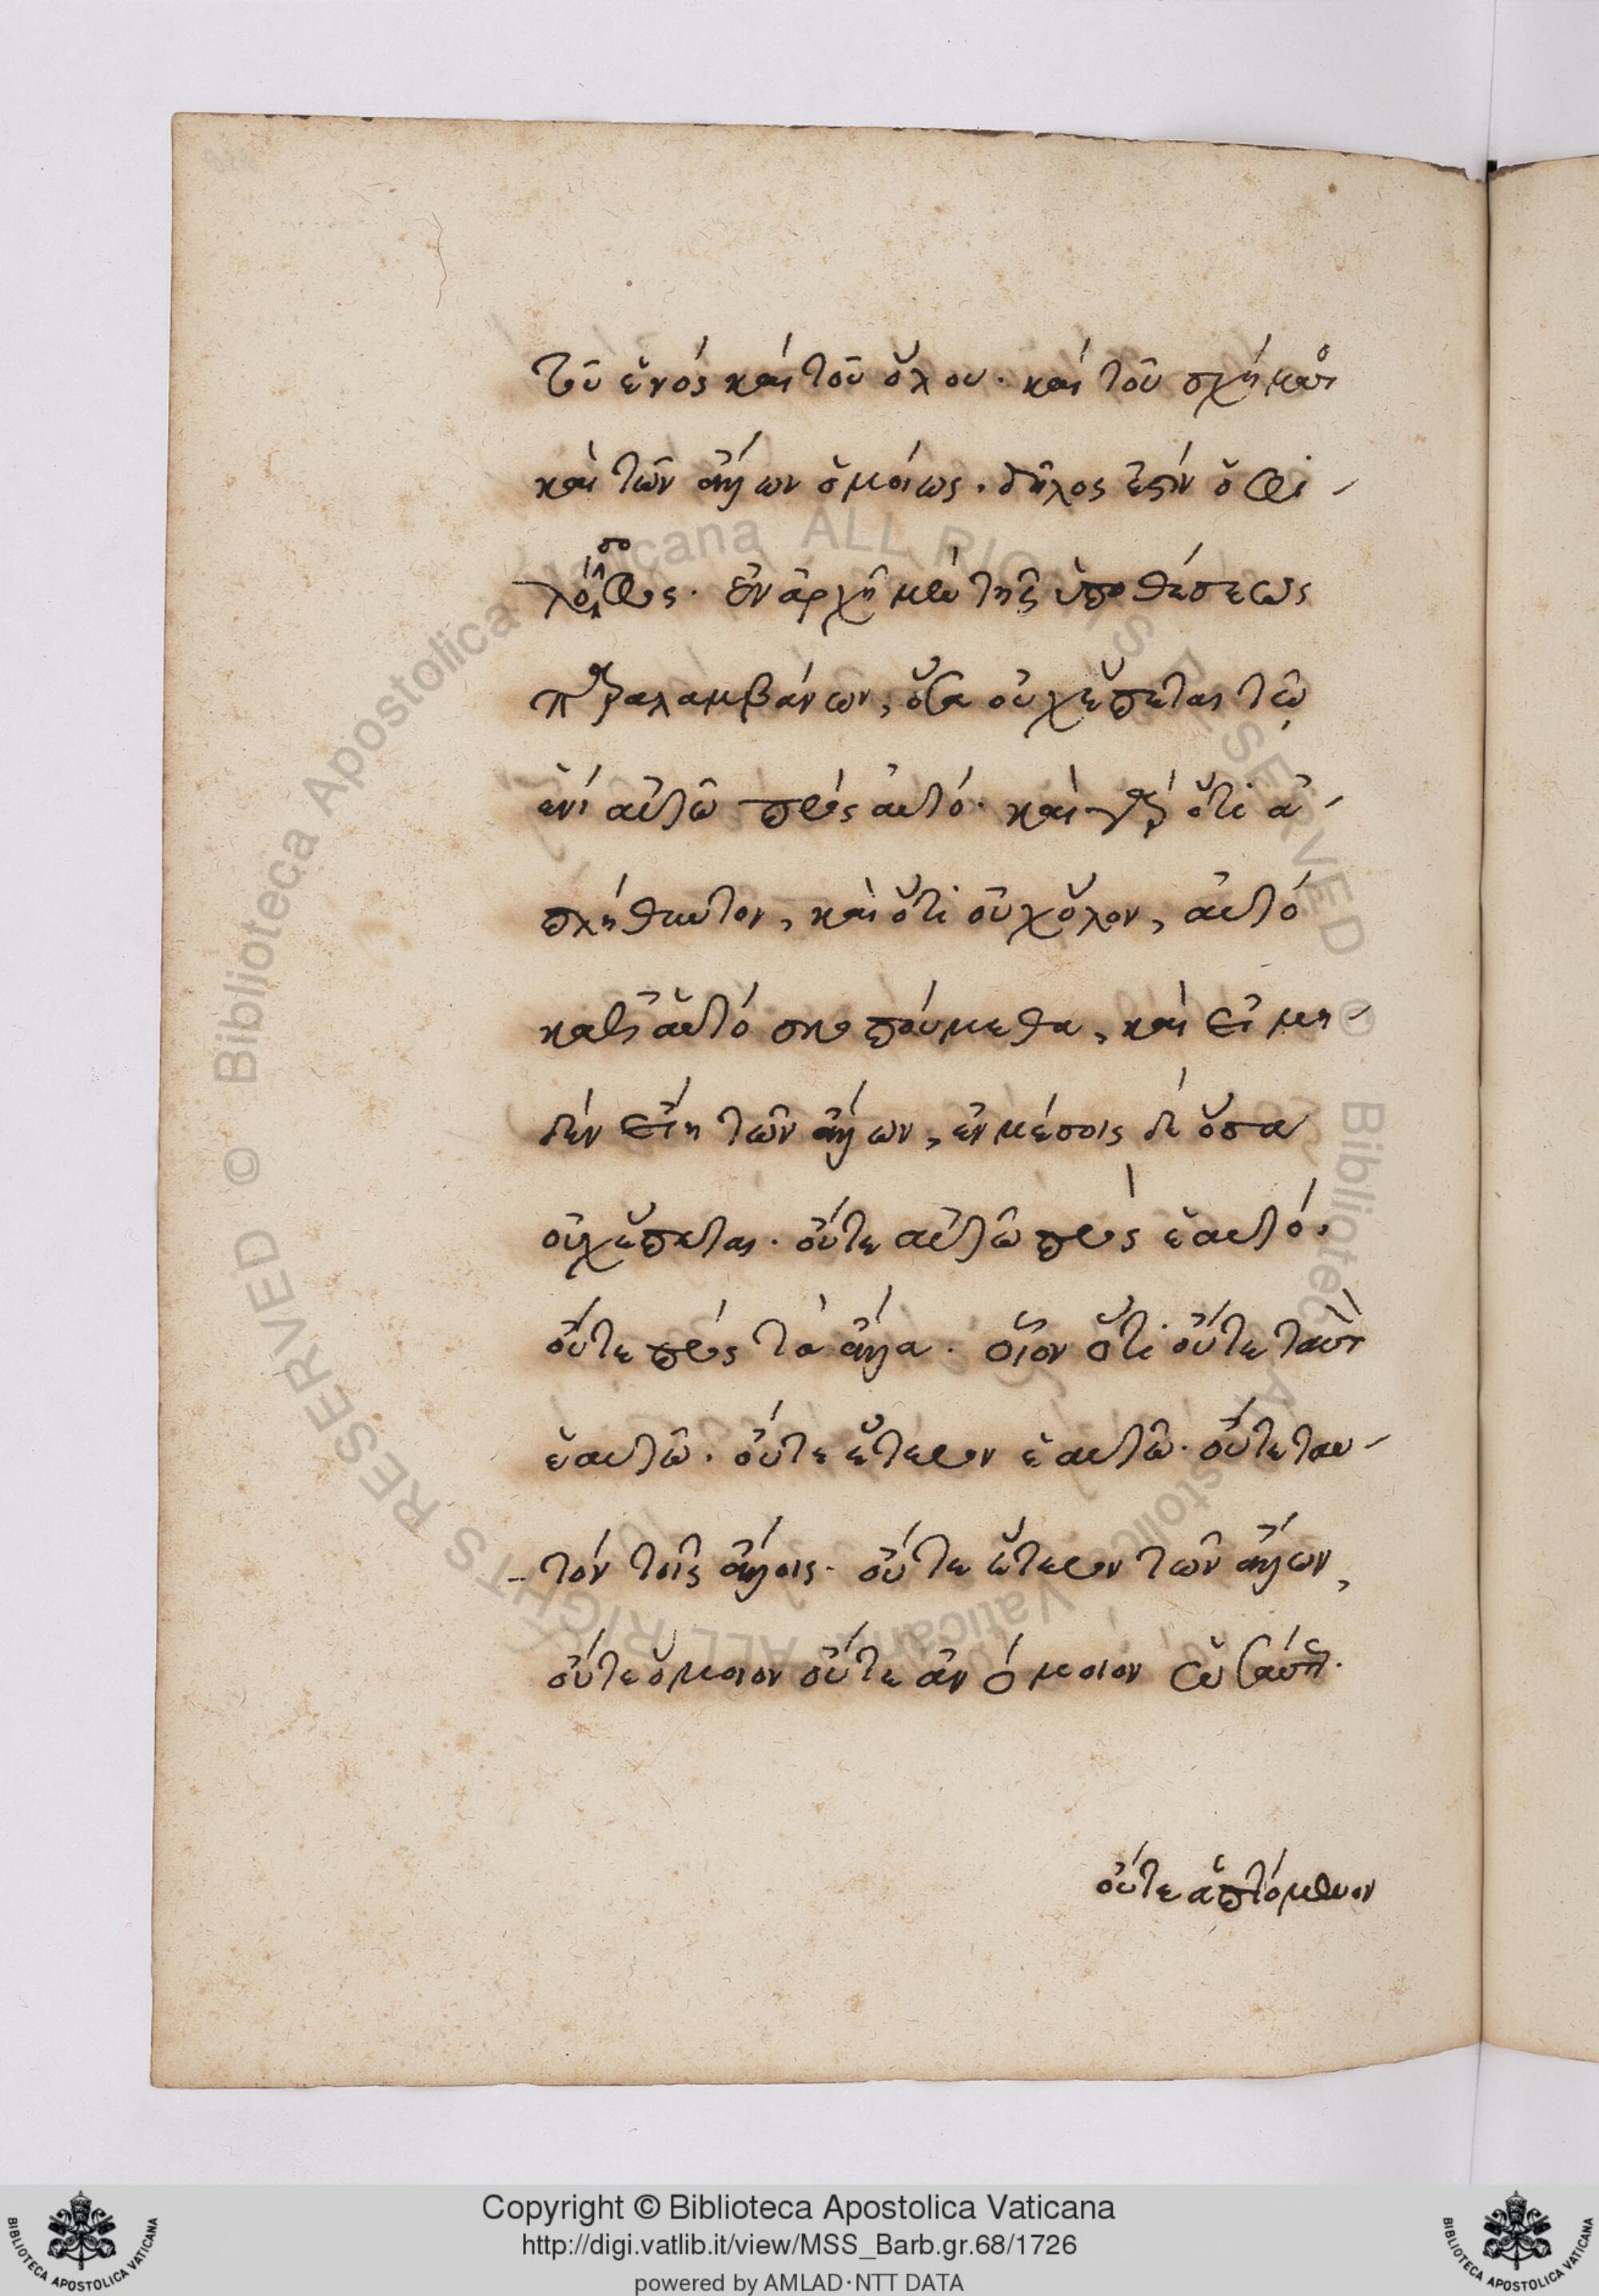 τοῦ ἑνὸς καὶ τοῦ ὅλου· καὶ τοῦ σχήματος
καὶ τῶν ἄλλων ὁμοίως· δῆλος ἐστὶν ὁ φι-
λόσοφος· ἐν ἀρχῇ μὲν τῆς ὑποθέσεως
παραλαμβάνων, ὅσα οὐχ ἕπεται τῷ
ἑνὶ αὐτῷ πρὸς αὐτό· καὶ γὰρ ὅτι ἀ-
πλήθυντον, καὶ ὅτι οὐχ ὅλον, αὐτὸ
καθ' αὑτὸ σκοπούμεθα, καὶ εἰ μη-
δὲν εἴη τῶν ἄλλων, ἐν μέσοις δὲ ὅσα
οὐχ ἕπεται· οὔτε αὐτῷ πρὸς ἑαυτό·
οὔτε πρὸς τὰ ἄλλα· οἷον ὅτι οὔτε ταυτὸν
ἑαυτῷ· οὔτε ἕτερον ἑαυτῷ· οὔτε ταυ-
τὸν τοῖς ἄλλοις· οὔτε ἕτερον τῶν ἄλλων,
οὔτε ὅμοιον οὔτε ἀνόμοιον ὡσαύτως·
οὔτε ἁπτόμενον
Copyright © Biblioteca Apostolica Vaticana
http://digi.vatlib.it/view/MSS_Barb.gr.68/1726
powered by AMLAD·NTT DATA